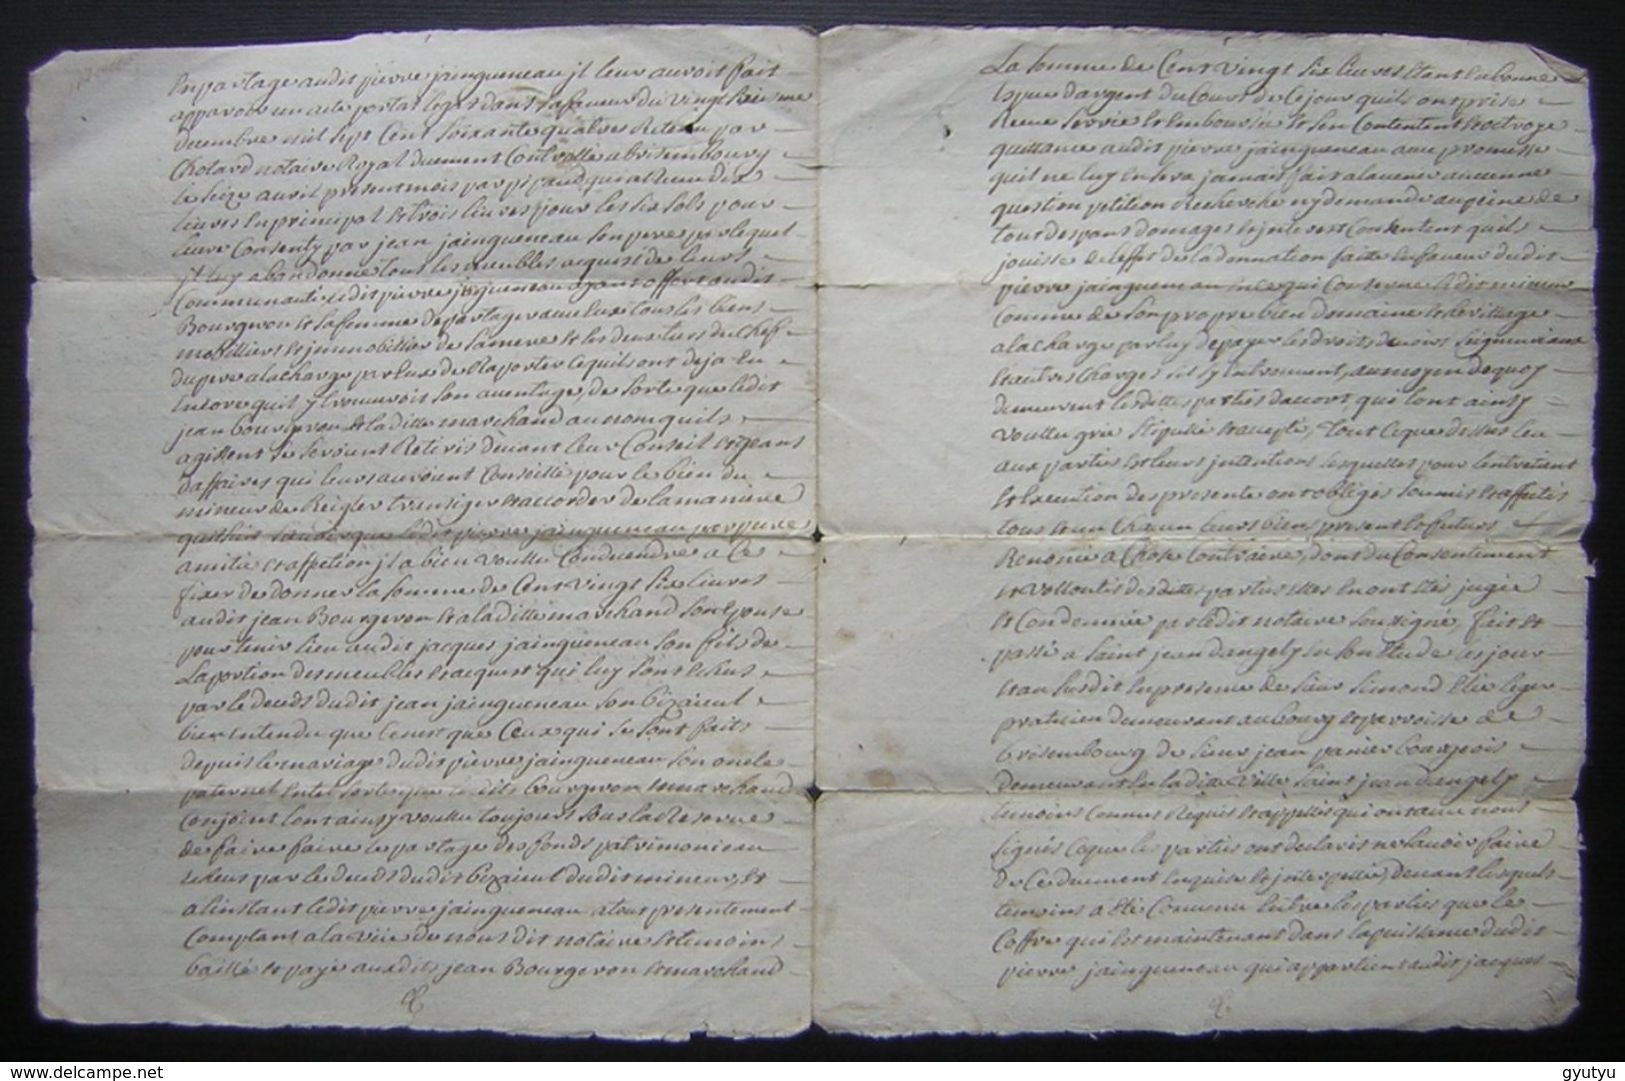 En partage audit pierre jaingueneau jl leur auroit fait
apparoir un acte portat leget dans sa faveur du vingt
decembre mil sept cent soixante quatres Retenu par
Chotard notaire Royal duement Controllé a brisembourg
le seize avril present mois par pipaud qui a Recu dix
livres En principal Et trois livres pour les six sols pour
livre Consenty par jean jaingueneau son pere par lequel
jl luy abandonne tous les meubles acquist de leurs
Communauté ledit pierre jaigueneau ayant offert audit
Bourgeron Et sa femme de partager avec Eux tous les biens
mobilliers Et jmmobillier de sa mere Et les deux tiers du Chef
du pere a la charge par Eux de Raporter ce quils ont deja Eu
Encore quil y trouveroit son aventage, de sorte que ledit
jean bourgeron Et la ditte marchand au nom quils
agissent se seroient Retirés devant leur Conseil Et gens
daffaires qui leurs auroient Conseillé pour le bien du
mineur de Reigler transiger Et accorder de la maniere
quil suit scavoir que ledit pierre jaingueneau par pure
amitié Et affection jl a bien voullu Condsendre a ce
fixer de donner la somme de Cent vingt six livres
audit jean Bourgeron Et a la ditte marchand son Epouse
pour tenir lieu audit jacques jaingueneau son fils de
La portion des meubles Et acquest qui luy sont Echus
par le deceds dudit jean jaingueneau son bizaieul
bien Entendu que ce n'est que Ceux qui se sont faits
depuis le mariage dudit pierre jaingueneau son oncle
paternel lesdits bourgeron Et marchand
Conjoint lont ainsy voullu toujours sous la Reserve
de faire faire le partage des fonds patrimoniau
Echus par le deceds dudit bizaieul dudit mineur, Et
a linstant ledit pierre jaingueneau a tout presentement
Comptant a la vüe de nous dit notaire Et temoins
baillé Et payé auxdits jean Bourgeron Et marchand
La somme de Cent vingt six livres Etant En bonne
Espece dargent du Cours de Ce jour quils ont prise
Recue serrée Et Emboursée Et sen Contentent Et octroye
quittance audit pierre jaingueneau avec promesse
quil ne luy En sera jamais fait a lavenir aucunne
question petition Recherche ny demande au peine de
tout despans domages Et jnterest Consentent quils
jouisse de leffet de la donnation faite En faveur dudit
pierre jaingueneau En ce qui Conserne ledit mineur
Comme de son propre bien domaine Et heritage
a la charge par luy de payer les droits devoirs seigneuriaux
Et autres Charges sil y Entrevient, au moyen de quoy
demeurent lesdittes parties dacort, qui lont ainsy
voullu gré stipullé Et accepté, Tout ce que dessus Les
aux parties Et leurs jntentions lesquelles pour lentretient
Et Execution des presente ont obligés soumis Et affectés
tous Et un Chacun leurs biens present Et futurs
Renoncé a Chose Contraire, dont du Consentement
Et vollontés desdittes parties Elles En ont Etés jugée
Et Condemnée par ledit notaire sousigné, fait Et
passé a saint jean dangely En son Etude les jour
Et an susdit En presence de sieur simond Elie leger
praticien demeurant au bourg Et parroisse de
brisembourg de sieur jean panier bourgeois
demeurant En la dite ville saint jean dangely
temoins Connus Requis Et appellés qui ont avec nous
signés ce que les parties ont declarés ne savoir faire
de Ce duement Enquise Et jnterpellé, devant lesquels
temoins a Eté Convenu Entre les parties que le
Coffre qui Est maintenant dans la puissance dudit
pierre jaingueneau qui appartient audit jacques
gyutyu